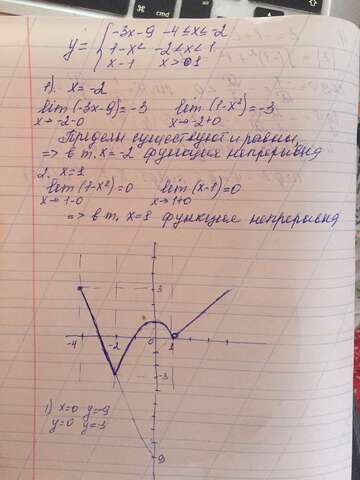 y = { -3x-9 -4≤x≤-2
1-x² -2<x<1
x-1 x>1
1). x=-2
lim(-3x-9)=-3 lim(1-x²)=-3
x→-2-0 x→-2+0
Пределы существуют и равны
=> в т. x=-2 функция непрерывна
2. x=1
lim(1-x²)=0 lim(x-1)=0
x→1-0 x→1+0
=> в т. x=1 функция непрерывна
3
-4 -2 0 1
-3
-9
1) x=0 y=-9
y=0 y=-3